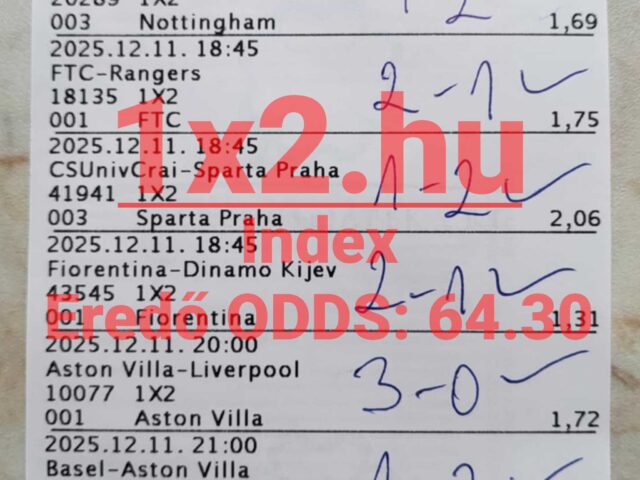 20289 1X2
1-2
003 Nottingham 1,69
2025.12.11. 18:45
FTC-Rangers
2-1
18135 1X2
001 FTC 1,75
2025.12.11. 18:45
CSUnivCrai-Sparta Praha
41941 1X2
1-2
003 Sparta Praha 2,06
2025.12.11. 18:45
Fiorentina-Dinamo Kijev
43545 1X2
2-1
001 Fiorentina 1,31
2025.12.11. 20:00
Aston Villa-Liverpool
10077 1X2
3-0
001 Aston Villa 1,72
2025.12.11. 21:00
Basel-Aston Villa
1x2.hu
Index
Eredő ODDS: 64.30